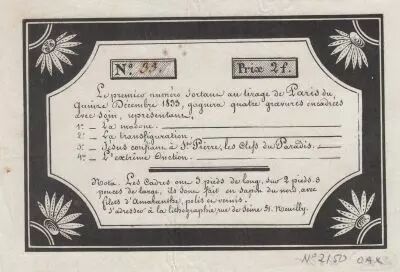 N° 34
Prix 2 f.
Le premier numéro sortant au tirage de Paris du
Quinze Décembre 1833, gagnera quatre gravures encadrées
avec soin, représentant,
1° — La madone.
2° — La transfiguration.
3° — Jésus confiant à St Pierre, les Clefs du Paradis.
4° — L'extrême Onction.
Nota. Les Cadres ont 3 pieds de long, sur 2 pieds 3
pouces de large, ils sont fait en sapin du nord, avec
filets d'Amaranthe, polis et vernis.
S'adresser à la lithographie rue de Seine St. Neuilly.
N° 2150